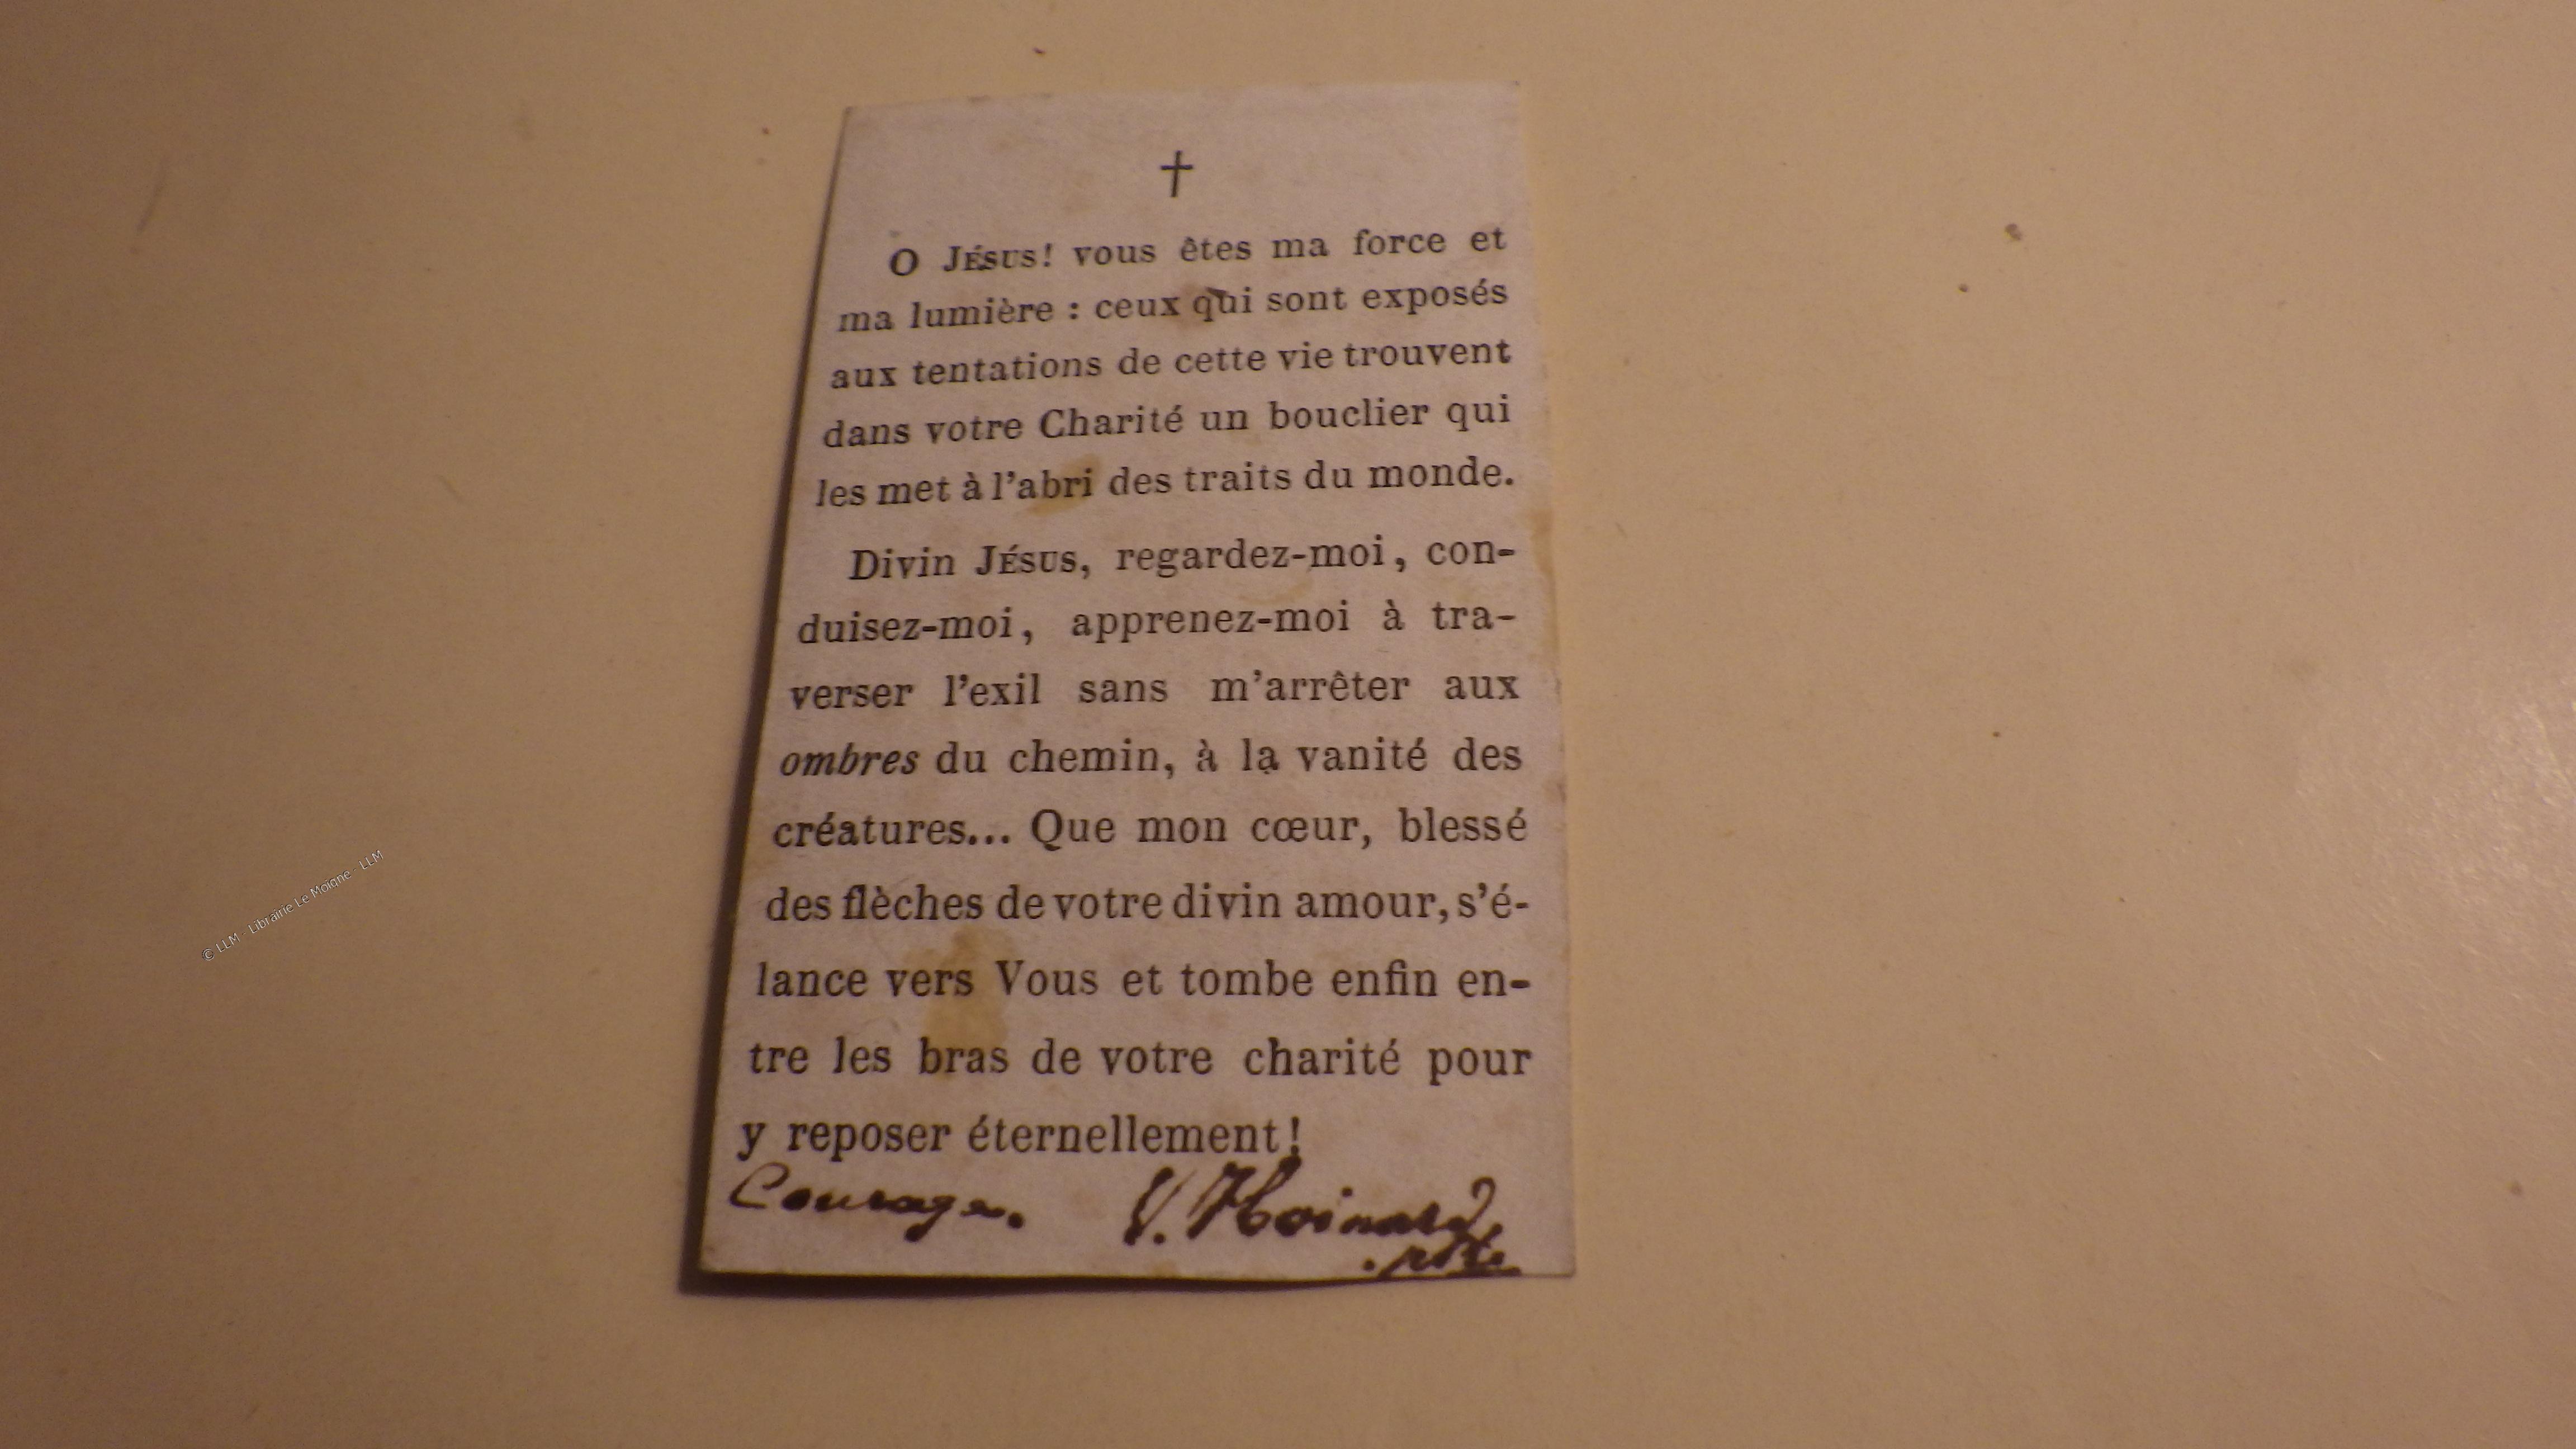 †
O JÉSUS! vous êtes ma force et
ma lumière : ceux qui sont exposés
aux tentations de cette vie trouvent
dans votre Charité un bouclier qui
les met à l'abri des traits du monde.
Divin JÉSUS, regardez-moi, con-
duisez-moi, apprenez-moi à tra-
verser l'exil sans m'arrêter aux
ombres du chemin, à la vanité des
créatures... Que mon cœur, blessé
des flèches de votre divin amour, s'é-
lance vers Vous et tombe enfin en-
tre les bras de votre charité pour
y reposer éternellement!
Courage. V. Hoinard
© LLM - Librairie Le Moigne - LLM